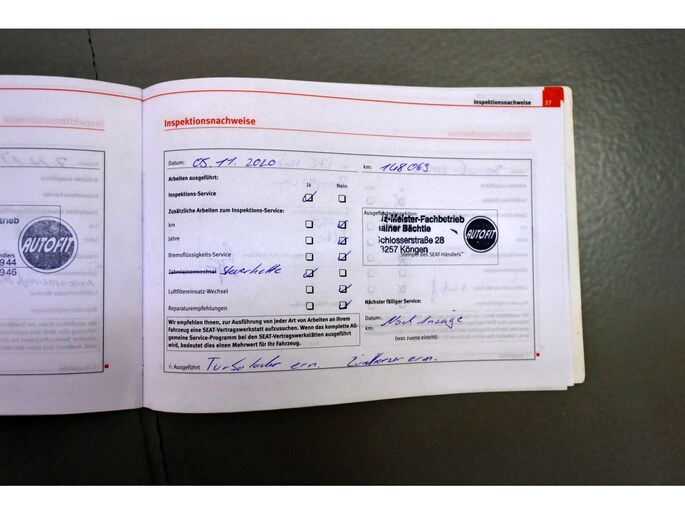 Inspektionsnachweise 27
Inspektionsnachweise
Datum: 05.11.2020 km: 148 069
Arbeiten ausgeführt:
Ja Nein
Inspektions-Service
Zusätzliche Arbeiten zum Inspektions-Service:
km
Jahre
Bremsflüssigkeits-Service
Zahnriemenwechsel Steuerkette
Luftfiltereinsatz-Wechsel
Reparaturempfehlungen
Wir empfehlen Ihnen, zur Ausführung von jeder Art von Arbeiten an Ihrem
Fahrzeug eine SEAT-Vertragswerkstatt aufzusuchen. Wenn das komplette All-
gemeine Service-Programm bei den SEAT-Vertragswerkstätten ausgeführt
wird, bedeutet dies einen Mehrwert für Ihr Fahrzeug.
Ausgeführt Turbolader ern. Zündkerzen ern.
tz-Meister-Fachbetrieb
ainer Bächtle
Schlosserstraße 28
3257 Köngen
AUTOFIT
Stempel des SEAT-Händlers
Nächster fälliger Service:
Datum: Nach Anzeige
km:
(was zuerst eintritt)
trieb
ändlers
9 44
9 46
AUTOFIT